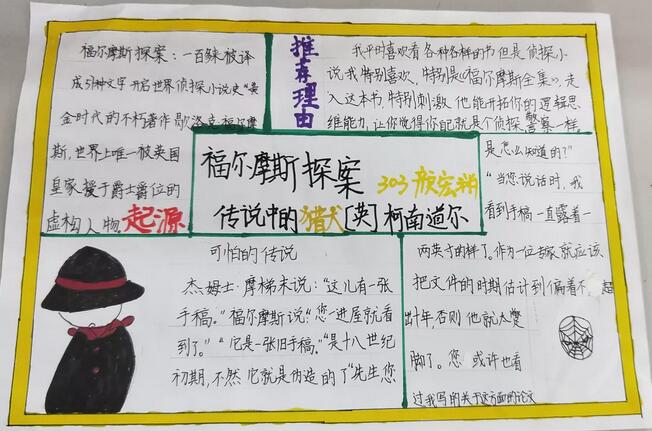 福尔摩斯探案：一百余被译
成引种文字开启世界侦探小说史"黄
金时代的不朽著作歇洛克·福尔摩
斯，世界上唯一被英国
皇家授于爵士爵位的
虚构人物。起源
推荐理由
我平时喜欢看各种各样的书但是侦探小
说我特别喜欢、特别是《福尔摩斯全集》，走
入这本书，特别刺激他能开拓你的逻辑思
维能力，让你觉得你自己就是个侦探警察一样
福尔摩斯探案
303
传说中的猎犬[英]柯南道尔
可怕的传说
杰姆士·摩梯末说："这儿有一张
手稿。"福尔摩斯说："您一进屋就看
到了。""它是一张旧手稿。""是十八世纪
初期，不然它就是伪造的了"先生您
是怎么知道的？"
"当您说话时，我
看到手稿一直露着一
两英寸的样子。作为一位专家就应该
把文件的时期估计到偏差不超
出十年，否则他就太蹩
脚了。您或许也看
过我写的关于这方面的论文